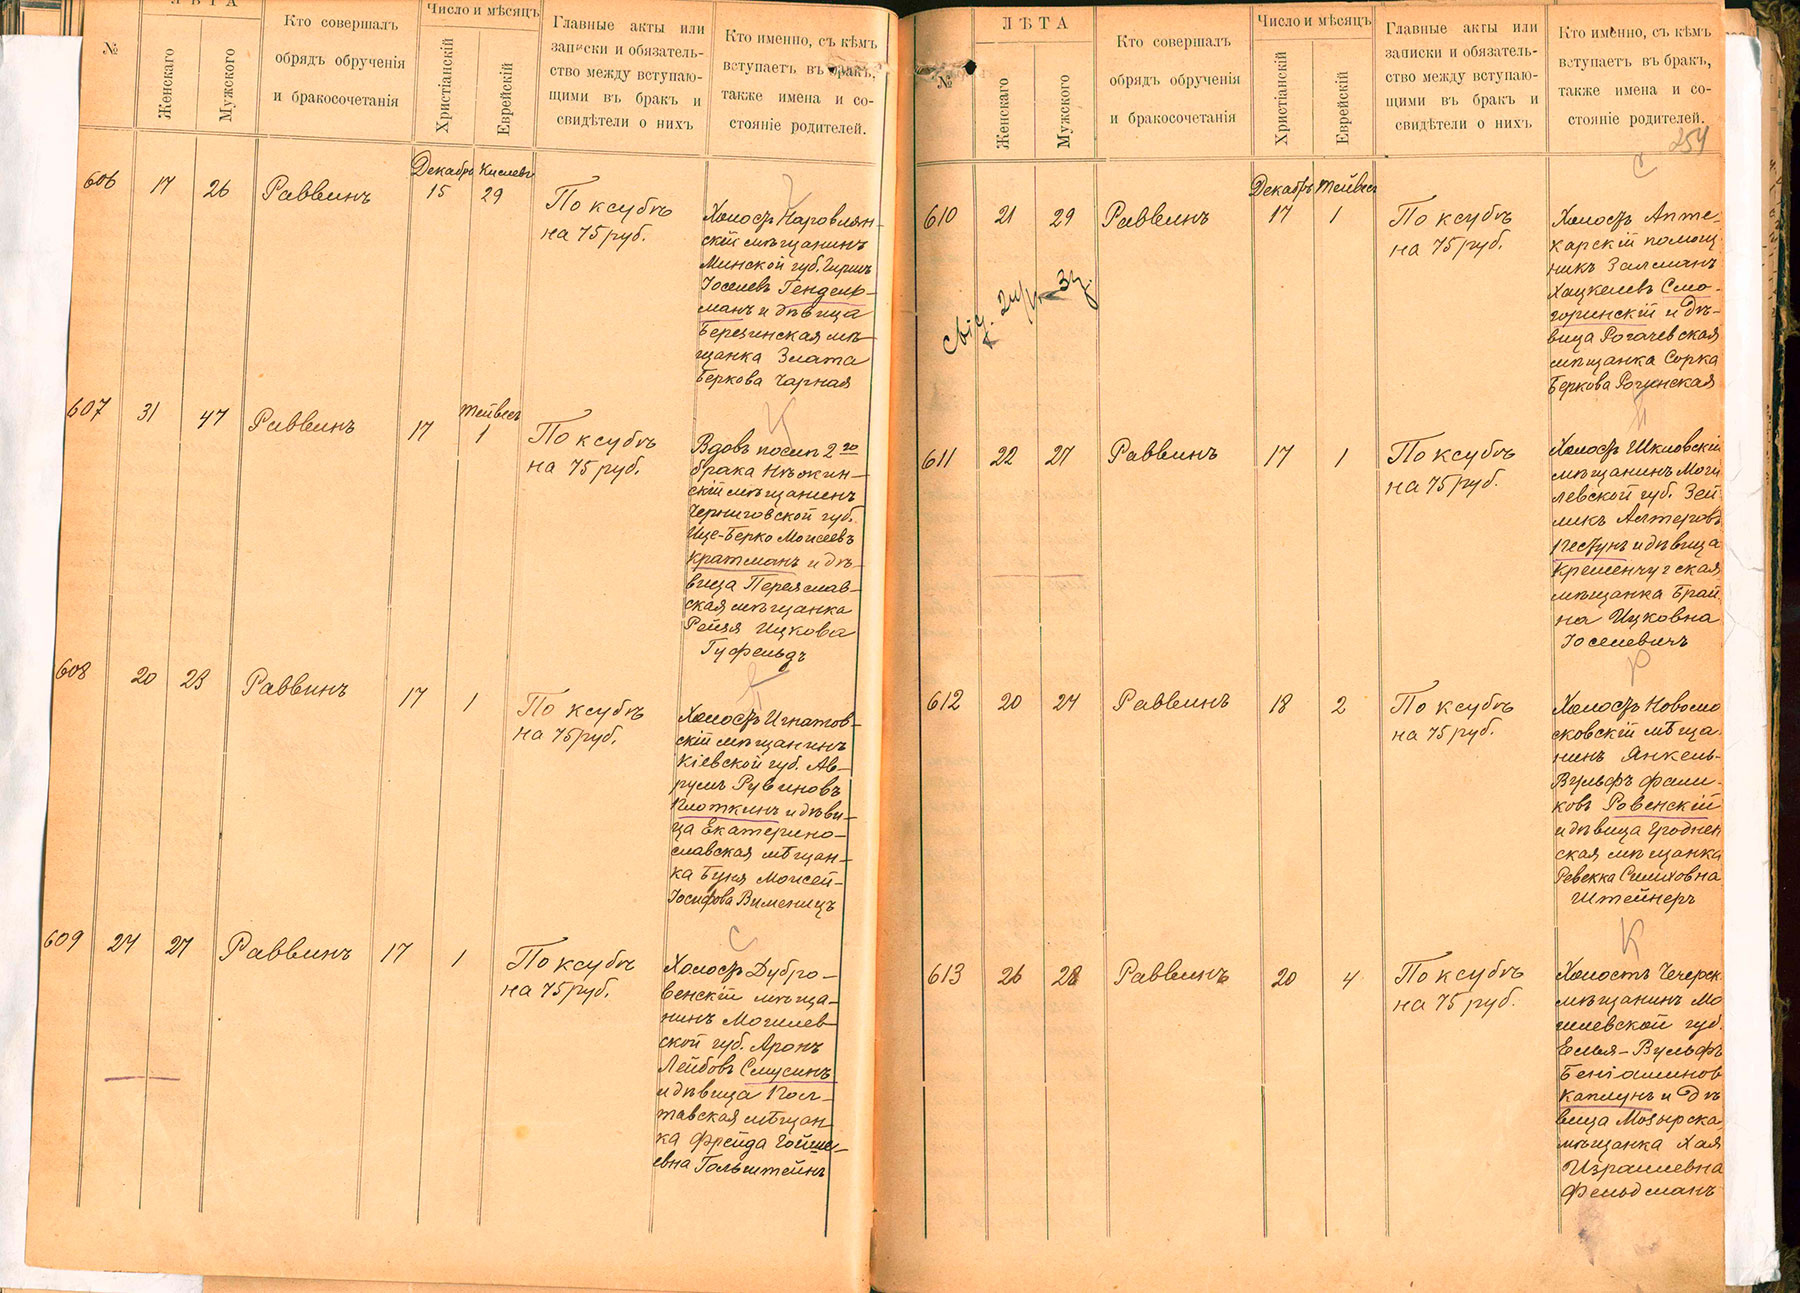 №
ЛѢТА
Женскаго
Мужского
Кто совершалъ
обрядъ обрученія
и бракосочетанія
Число и мѣсяцъ
Христіанскій
Еврейскій
Главные акты или
записки и обязатель-
ство между вступаю-
щими въ бракъ и
свидѣтели о нихъ
Кто именно, съ кѣмъ
вступаетъ въ бракъ,
также имена и со-
стояніе родителей.
606
17
26
Раввинъ
Декабрь
15
Кислевъ
29
По ксубѣ
на 75 руб.
Холостъ Наровлян-
скій мѣщанинъ
Минской губ. Гиршъ
Іоселевъ Гендель-
манъ и дѣвица
Березинская мѣ-
щанка Злата
Беркова Чарная
607
31
47
Раввинъ
17
Тейвесъ
1
По ксубѣ
на 75 руб.
Вдовъ посл 2го
брака Нѣжин-
скій мѣщанинъ
Черниговской губ.
Ице-Берко Моисеевъ
Кратманъ и дѣ-
вица Переяслав-
ская мѣщанка
Рейзя Ицкова
Гуфельдъ
608
20
23
Раввинъ
17
1
По ксубѣ
на 75 руб.
Холостъ Игнатов-
скій мѣщанинъ
Кіевской губ. Ав-
румъ Рувиновъ
Плоткинъ и дѣви-
ца Екатерино-
славская мѣщан-
ка Буня Моисей-
Іосифова Вименицъ
609
24
27
Раввинъ
17
1
По ксубѣ
на 75 руб.
С
Холостъ Дубро-
венскій мѣща-
нинъ Могилев-
ской губ. Аронъ
Лейбовъ Смусинъ
и дѣвица Пол-
тавская мѣщан
ка Фрейда
евна Гольштейнъ
№
ЛѢТА
Женскаго
Мужского
Кто совершалъ
обрядъ обрученія
и бракосочетанія
Число и мѣсяцъ
Христіанскій
Еврейскій
Главные акты или
записки и обязатель-
ство между вступаю-
щими въ бракъ и
свидѣтели о нихъ
Кто именно, съ кѣмъ
вступаетъ въ бракъ,
также имена и со-
стояніе родителей.
254
С
610
21
29
Раввинъ
Декабрь
17
Тейвесъ
1
По ксубѣ
на 75 руб.
Холостъ Апте-
карскій помощ
никъ Залманъ
Хацкелевъ Смо-
горинскій и дѣ-
вица Рогачевская
мѣщанка Сорка
Беркова Рогинская
611
22
27
Раввинъ
17
1
По ксубѣ
на 75 руб.
П
Холостъ Шкловскій
мѣщанинъ Моги
левской губ. Зей
ликъ Алтеровъ
Пестунъ и дѣвица
Кременчугская
мѣщанка Брай
на Ицковна
Іоселевичъ
612
20
24
Раввинъ
18
2
По ксубѣ
на 75 руб.
Р
Холостъ Новомо
сковскій мѣща
нинъ Янкель-
Вульфъ Фали-
ковъ Ровенскій
и дѣвица Гроднен
ская мѣщанка
Ревекка Симховна
Штейнеръ
613
26
28
Раввинъ
20
4
По ксубѣ
на 75 руб.
К
Холостъ Чечерск.
мѣщанинъ Мо
гилевской губ.
Елья-Вульфъ
Беніаминов
Каплунъ и дѣ
вица Мозырска
мѣщанка Хая
Израилевна
Фельдманъ